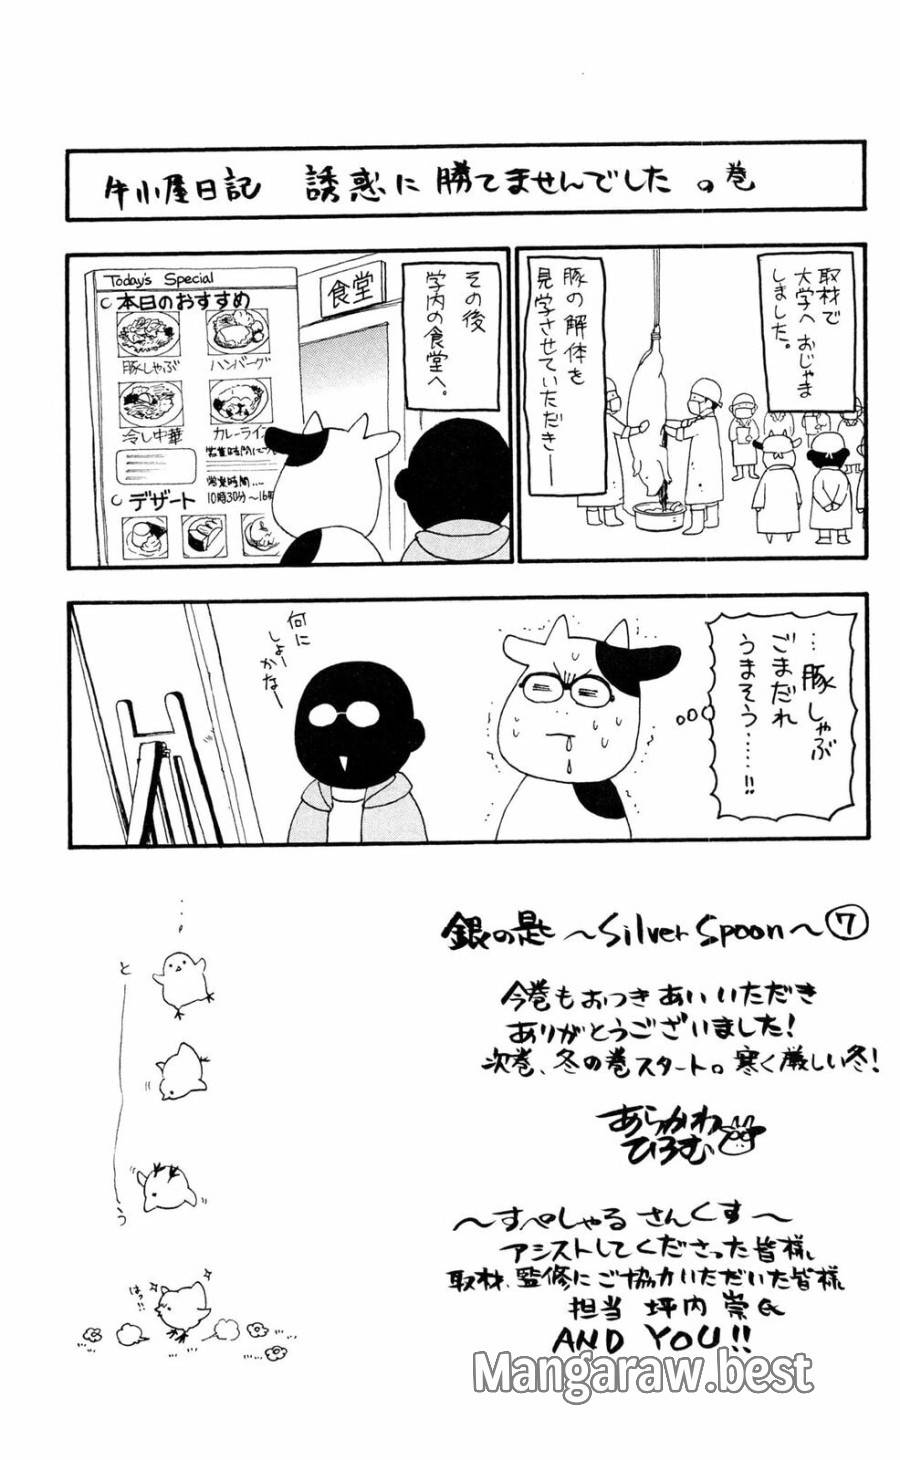 牛小屋日記 誘惑に勝てませんでした の巻
取材で
大学へおじゃま
しました。
豚の解体を
見学させていただき──
その後
学内の食堂へ。
食堂
Today's Special
本日のおすすめ
豚しゃぶ
ハンバーグ
冷し中華
カレーライ
営業時間
営業時間‥‥
10時30分〜16時
デザート
…豚しゃぶ
ごまだれ
うまそう……!!
何に
しょー
かなー
銀の匙 〜Silver Spoon〜 ⑦
今巻もおつきあいいただき
ありがとうございました!
次巻、冬の巻スタート。寒く厳しい冬!
あらかわ
ひろむ
〜すぺしゃる さんくす〜
アシストしてくださった皆様、
取材、監修にご協力いただいた皆様
担当 坪内 崇氏
AND YOU!!
と
う
はっ!!
Mangaraw.best